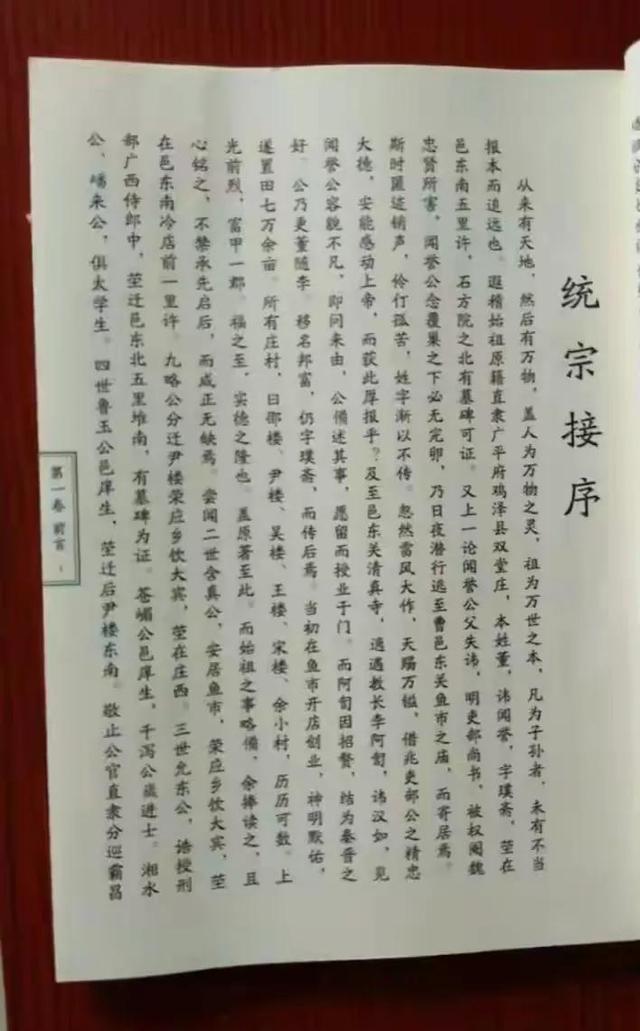 统宗接序
从来有天地，然后有万物，盖人为万物之灵，祖为万世之本，凡为子孙者，未有不当
报本而追远也。遐稽始祖原籍直隶广平府鸡泽县双堂庄，本姓董，讳闻誉，字璞斋，茔在
邑东南五里许，石方院之北有墓碑可证。又上一论闻誉公父失讳，明吏部尚书，被权阉魏
忠贤所害，闻誉公念覆巢之下必无完卵，乃日夜潜行逃至曹邑东关鱼市之庙，而寄居焉。
斯时匿迹销声，伶仃孤苦，姓字渐以不传。忽然雷风大作，天赐万镒，借非吏部公之精忠
大德，安能感动上帝，而获此厚报乎？及至邑东关清真寺，遇教长李阿訇，讳汉如，见
闻誉公容貌不凡，即问来由，公备述其事，愿留而授业于门。而阿訇因招赘，结为秦晋之
好。公乃更董随李。移名邦富，仍字璞斋，而传后焉。当初在鱼市开店创业，神明默佑，
遂置田七万余亩。所有庄村，曰邵楼、尹楼、吴楼、王楼、宋楼、余小村，历历可数。上
光前烈，富甲一郡。福之至，实德之隆也。盖原著至此。而始祖之事略备，余捧读之，且
心铭之，不禁承先启后，而咸正无缺焉。尝闻二世含真公，安居鱼市，荣应乡饮大宾，茔
在邑东南冷店前一里许。九略公分迁尹楼荣应乡饮大宾，茔在庄西。三世允东公，诰授刑
部广西侍郎中，茔迁邑东北五里堆南，有墓碑为证。苍嵋公邑庠生，千泻公岁进士。湘水
公、嶓来公，俱太学生。四世鲁玉公邑庠生，茔迁后尹楼东南。敬止公官直隶分巡霸昌
第一卷 前言
1